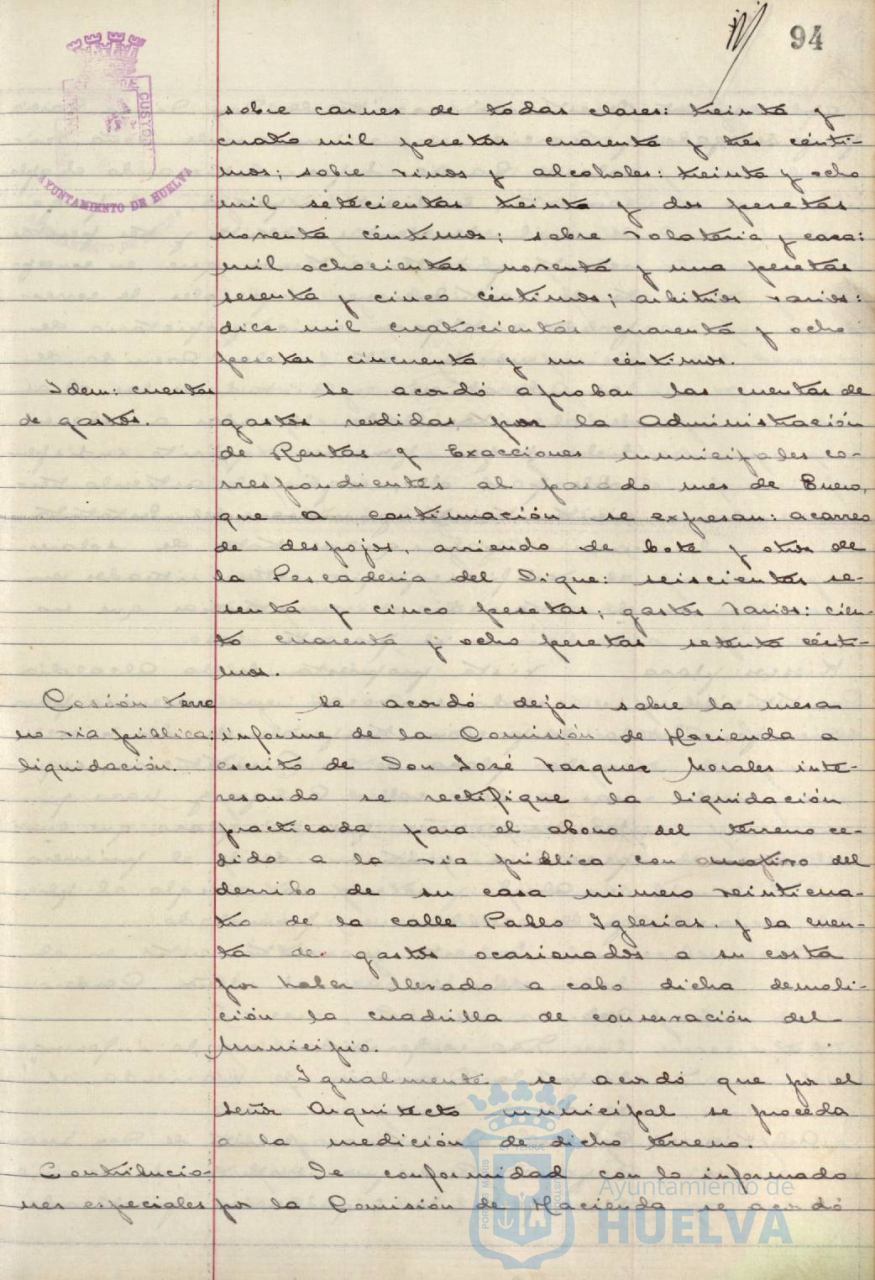 94
CUSTOS
AYUNTAMIENTO DE HUELVA
sobre carnes de todas clases: treinta y
cuatro mil pesetas cuarenta y tres cénti-
mos; sobre vinos y alcoholes: treinta y ocho
mil setecientas treinta y dos pesetas
noventa céntimos; sobre volateria y caza:
mil ochocientas noventa y una pesetas
sesenta y cinco céntimos; arbitrios varios:
diez mil cuatrocientas cuarenta y ocho
pesetas cincuenta y un céntimos.
Idem: cuentas
de gastos.
Se acordó aprobar las cuentas de
gastos rendidas por la Administración
de Rentas y Exacciones municipales co-
rrespondientes al pasado mes de Enero,
que a continuación se expresan: acarreo
de despojos, arriendo de bote y otros de
la Pescaderia del Dique: seiscientas se-
senta y cinco pesetas; gastos varios: cien-
to cuarenta y ocho pesetas setenta cénti-
mos.
Cesión terre
no via pública:
liquidación.
Se acordó dejar sobre la mesa
informe de la Comisión de Hacienda a
escrito de Don José Vazquez Morales inte-
resando se rectifique la liquidación
practicada para el abono del terreno ce-
dido a la via pública con motivo del
derribo de su casa número veinticua-
tro de la calle Pablo Iglesias, y la cuen-
ta de gastos ocasionados a su costa
por haber llevado a cabo dicha demoli-
ción la cuadrilla de conservación del
Municipio.
Igualmente se acordó que por el
señor Arquitecto municipal se proceda
a la medición de dicho terreno.
Contribucio-
nes especiales
De conformidad con lo informado
por la Comisión de Hacienda se acordó
Ayuntamiento de
HUELVA